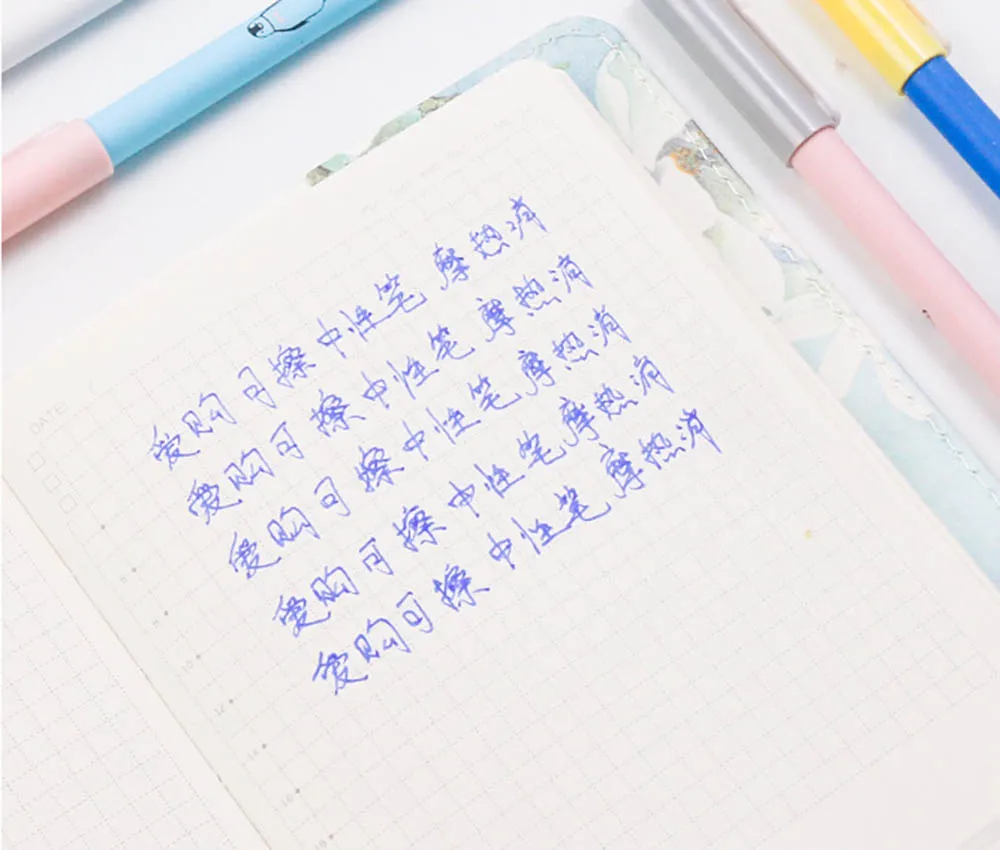 DATE
爱购可擦中性笔摩热消
爱购可擦中性笔摩热消
爱购可擦中性笔摩热消
爱购可擦中性笔摩热消
爱购可擦中性笔摩热消
8
10
12
14
16